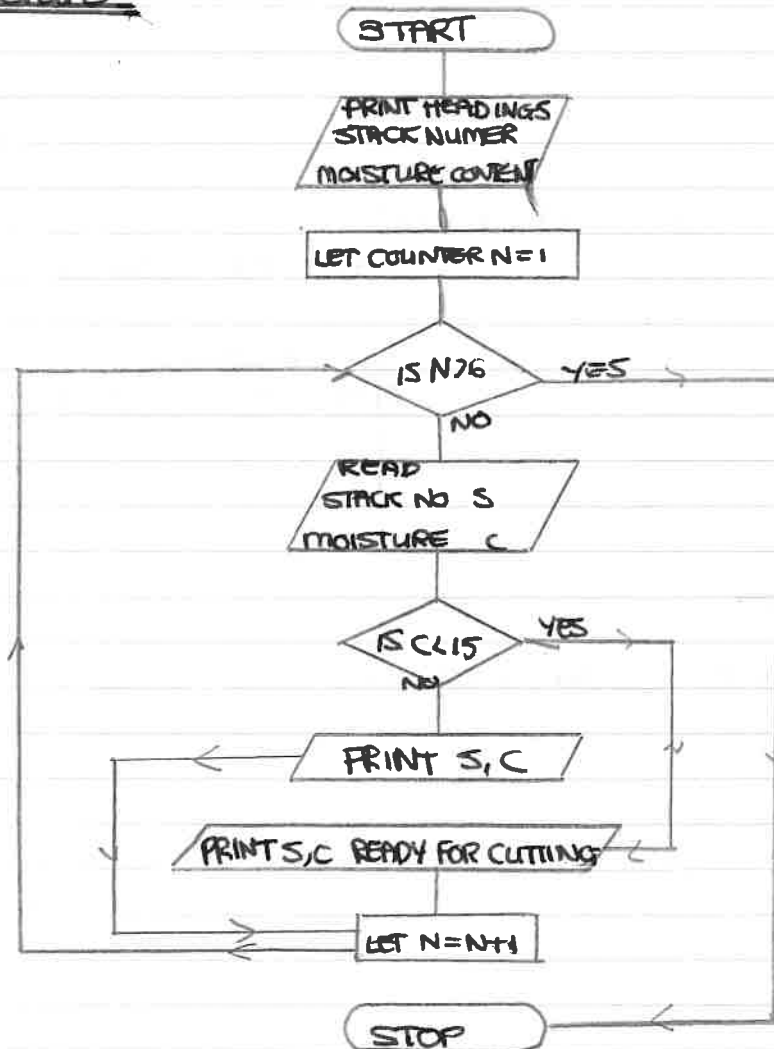 START
PRINT HEADINGS
STACK NUMER
MOISTURE CONTENT
LET COUNTER N=1
IS N>6
YES
NO
READ
STACK NO S
MOISTURE C
IS C<15
YES
NO
PRINT S, C
PRINT S,C READY FOR CUTTING
LET N=N+1
STOP